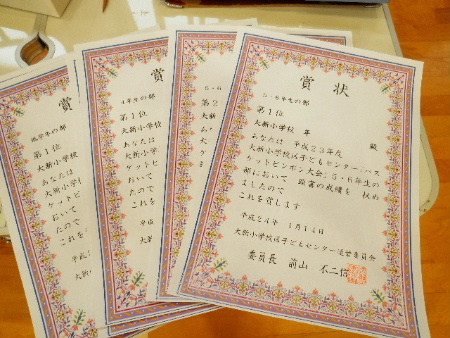 賞
低学年の部
第1位
大新小学校
あなたは
大新小学
ケットピ
おいて
たので
これを
平成
大新
賞
4年生の部
第1位
大新小学校
あなたは
大新小学
ケットピ
おいて
たので
これを
平成
大新
5・6
第2
大新
賞状
5・6年生の部
第1位
大新小学校 年 殿
あなたは 平成23年度
大新小学校区子どもセンター「バス
ケットピンポン大会」5・6年生の
部において 頭書の成績を 収め
ましたので
これを賞します
平成24年 1月14日
大新小学校区子どもセンター運営委員会
委員長 前山 不二信